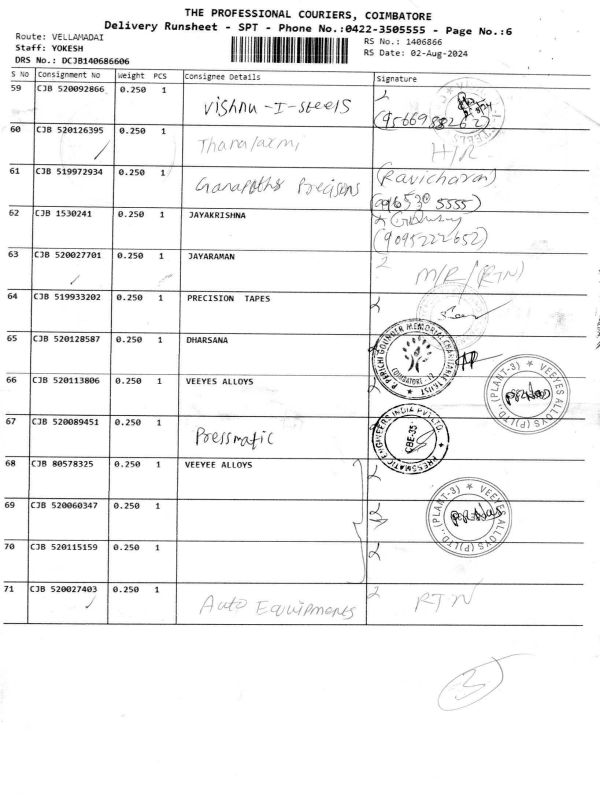 THE PROFESSIONAL COURIERS, COIMBATORE
Delivery Runsheet - SPT - Phone No.:0422-3505555 - Page No.:6
Route: VELLAMADAI
Staff: YOKESH
DRS No.: DCJB140686606
RS No.: 1406866
RS Date: 02-Aug-2024
S No Consignment No Weight PCS Consignee Details Signature
59 CJB 520092866 0.250 1 Vishnu-I-Steels
60 CJB 520126395 0.250 1 Thanalaxmi H/R
61 CJB 519972934 0.250 1 Ganapathy Precisons (Ravicharan)
(99653 05555)
62 CJB 1530241 0.250 1 JAYAKRISHNA
(9095222652)
63 CJB 520027701 0.250 1 JAYARAMAN M/R/(RTN)
64 CJB 519933202 0.250 1 PRECISION TAPES
65 CJB 520128587 0.250 1 DHARSANA
P. PERICHI GOUNDER MEMORIAL CHARITABLE TRUST
COIMBATORE - 12
66 CJB 520113806 0.250 1 VEEYES ALLOYS
VEEYES ALLOYS (P) LTD., (PLANT-3)
67 CJB 520089451 0.250 1 Pressmatic
PRESSMATIC ENGINEERS INDIA PVT LTD.
CBE-35
68 CJB 80578325 0.250 1 VEEYEE ALLOYS
69 CJB 520060347 0.250 1
VEEYES ALLOYS (P) LTD., (PLANT-3)
70 CJB 520115159 0.250 1
71 CJB 520027403 0.250 1 Auto Equipments RTN
3